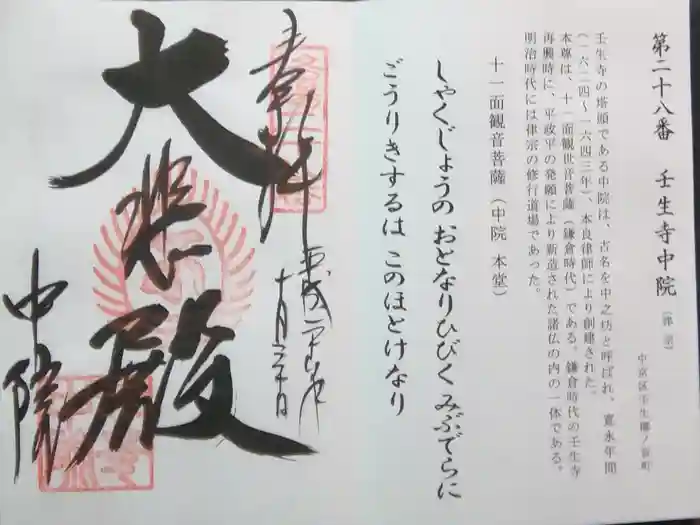 第二十八番　壬生寺中院（律宗）
中京区壬生梛ノ宮町
壬生寺の塔頭である中院は、古名を中之坊と呼ばれ、寛永年間
（一六二四～一六四三年）、本良律師により創建された。
本尊は、十一面観世音菩薩（鎌倉時代）である。鎌倉時代の壬生寺
再興時に、平政平の発願により新造された諸仏の内の一体である。
明治時代には律宗の修行道場であった。
十一面観音菩薩（中院　本堂）
しゃくじょうの おとなりひびく みぶでらに
ごうりきするは このほとけなり
奉拝
大悲殿
中院